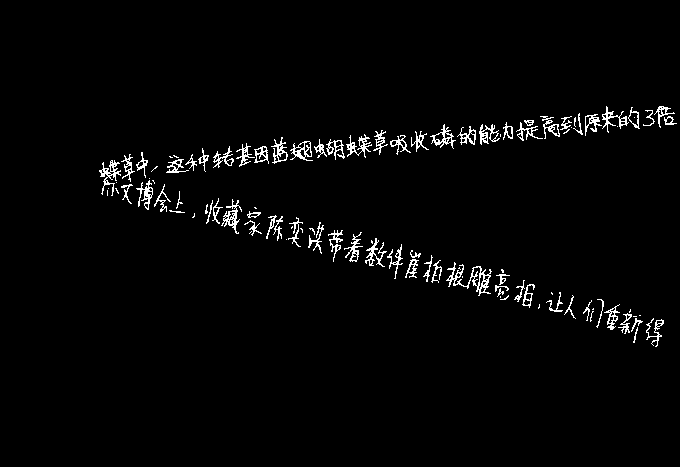 蝶草中，这种转基因蓝翅蝴蝶草吸收磷的能力提高到原来的3倍
京文博会上，收藏家陈奕洪带着数件崖柏根雕亮相，让人们重新得